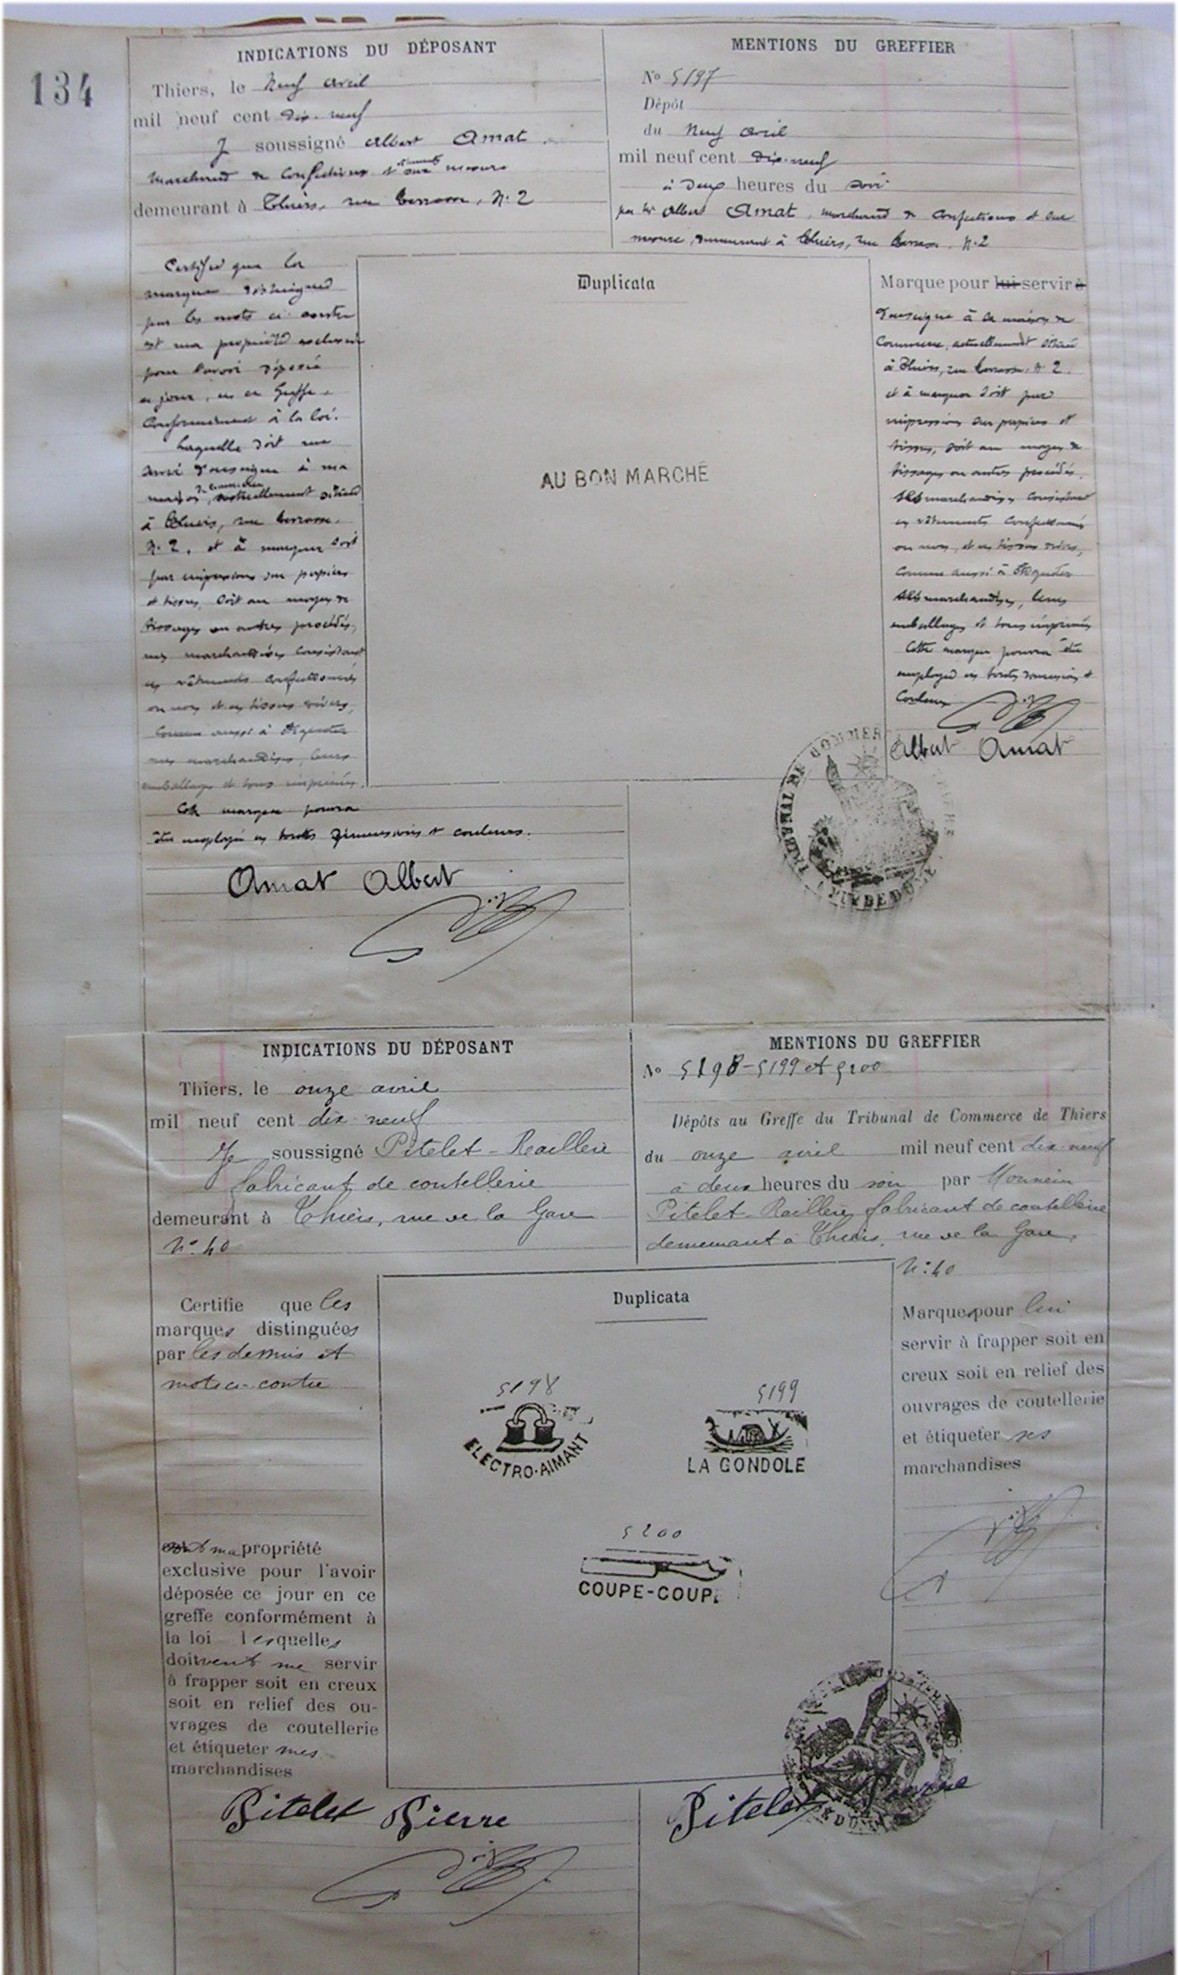 134
INDICATIONS DU DÉPOSANT
Thiers, le Neuf avril
mil neuf cent dix-neuf
Je soussigné Albert Amat
marchand de confections et sur mesure
demeurant à Thiers, rue Terrasse, N° 2
MENTIONS DU GREFFIER
N° 5197
Dépôt
du Neuf avril
mil neuf cent dix-neuf
à deux heures du soir
par Mr Albert Amat, marchand de confections et sur
mesure, demeurant à Thiers, rue Terrasse, N° 2
Certifie que la
marque distinguée
par les mots ci-contre
est ma propriété exclusive
pour l'avoir déposée
ce jour, en ce Greffe,
conformément à la loi.
Laquelle doit me
servir d'enseigne à ma
maison de commerce, actuellement située
à Thiers, rue Terrasse,
N° 2, et à marquer soit
par impressions sur papiers
et tissus, soit au moyen de
tissages ou autres procédés,
mes marchandises consistant
en vêtements confectionnés
ou non et en tissus divers,
comme aussi à étiqueter
mes marchandises, leurs
emballages et tous imprimés.
Cette marque pourra
être employée en toutes dimensions et couleurs.
Amat Albert
Duplicata
AU BON MARCHÉ
Marque pour lui servir à
d'enseigne à la maison de
commerce, actuellement située
à Thiers, rue Terrasse, N° 2.
et à marquer soit par
impressions sur papiers et
tissus, soit au moyen de
tissages ou autres procédés,
ses marchandises consistant
en vêtements confectionnés
ou non, et en tissus divers,
comme aussi à étiqueter
ses marchandises, leurs
emballages et tous imprimés
Cette marque pourra être
employée en toutes dimensions et
couleurs
Albert Amat
TRIBUNAL DE COMMERCE
THIERS
PUY DE DÔME
INDICATIONS DU DÉPOSANT
Thiers, le onze avril
mil neuf cent dix neuf
Je soussigné Pitelet-Raillère
fabricant de coutellerie
demeurant à Thiers, rue de la Gare
N° 40
MENTIONS DU GREFFIER
N° 5198-5199 et 5200
Dépôts au Greffe du Tribunal de Commerce de Thiers
du onze avril mil neuf cent dix-neuf
à deux heures du soir par Monsieur
Pitelet-Raillère, fabricant de coutellerie
demeurant à Thiers, rue de la Gare,
N° 40
Certifie que les
marques distinguées
par les dessins et
mots ci-contre
sont ma propriété
exclusive pour l'avoir
déposée ce jour en ce
greffe conformément à
la loi lesquelles
doivent me servir
à frapper soit en creux
soit en relief des ou-
vrages de coutellerie
et étiqueter mes
marchandises
Pitelet Pierre
Duplicata
5198
ELECTRO-AIMANT
5199
LA GONDOLE
5200
COUPE-COUP
Marques pour lui
servir à frapper soit en
creux soit en relief des
ouvrages de coutellerie
et étiqueter ses
marchandises
Pitelet Pierre